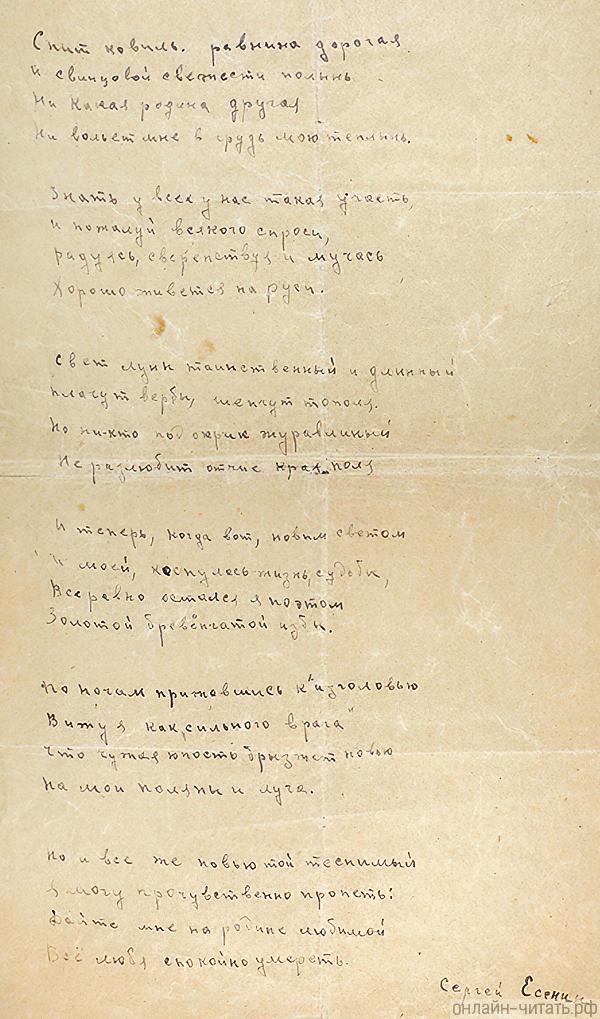 Спит ковыль. равнина дорогая
И свинцовой свежести полынь
Ни какая родина другая
Ни вольет мне в грудь мою теплынь.
Знать у всех у нас такая участь,
и пожалуй всякого спроси,
радуясь, сверепствуя и мучась
Хорошо живется на руси.
Свет луны таинственный и длинный
Плачут вербы, шепчут тополя.
Но ни-кто под окрик журавлиный
Не разлюбит отчие края поля
И теперь, когда вот, новым светом
И моей, коснулась жизнь, судьбы,
Все равно остался я поэтом
Золотой бревёнчатой избы.
По ночам прижавшись к "изголовью
Вижу я как, сильного врага"
Что чужая юность брызжет новью
На мои поляны и луга.
Но и все же новью той теснимый
Я могу прочувственно пропеть:
Дайте мне на родине любимой
Всё любя спокойно умереть.
Сергей Есенин
онлайн-читать.рф